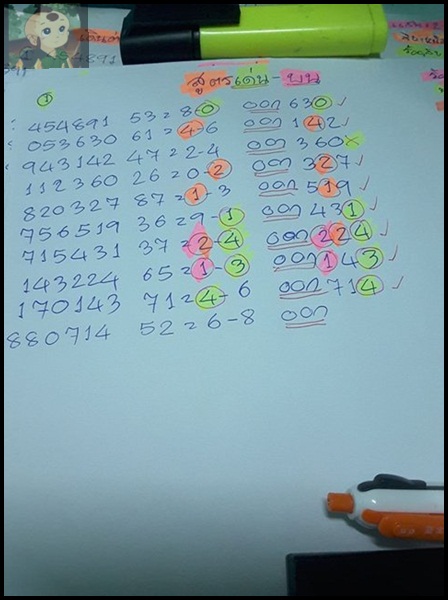 สูตรเด่น-บน
1
454891 53=8-0 ออก 630 ✓
053630 61=4-6 ออก 142 ✓
943142 47=2-4 ออก 360 ×
112360 26=0-2 ออก 327 ✓
820327 87=1-3 ออก 519 ✓
756519 36=9-1 ออก 431 ✓
715431 37=2-4 ออก 224 ✓
143224 65=1-3 ออก 143 ✓
170143 71=4-6 ออก 714 ✓
880714 52=6-8 ออก